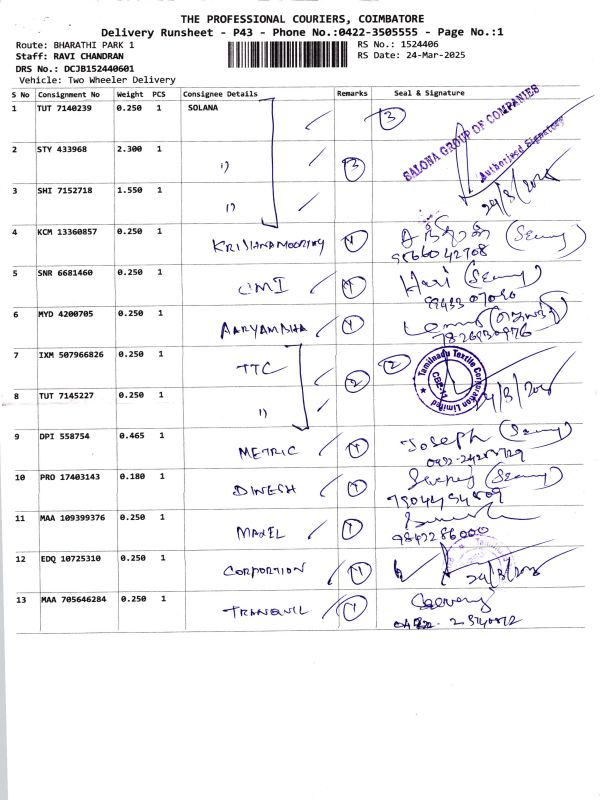 THE PROFESSIONAL COURIERS, COIMBATORE
Delivery Runsheet - P43 - Phone No.:0422-3505555 - Page No.:1
Route: BHARATHI PARK 1
RS No.: 1524406
Staff: RAVI CHANDRAN
RS Date: 24-Mar-2025
DRS No.: DCJB152440601
Vehicle: Two Wheeler Delivery
S No Consignment No Weight PCS Consignee Details Remarks Seal & Signature
1 TUT 7140239 0.250 1 SOLANA 3
SALONA GROUP OF COMPANIES
Authorised Signatory
2 STY 433968 2.300 1 11 3
3 SHI 7152718 1.550 1 11
4 KCM 13360857 0.250 1 KRISHNAMOORTHY 1
9566042708
5 SNR 6681460 0.250 1 CMI 1 Hari
6 MYD 4200705 0.250 1 1
7826930976
7 IXM 507966826 0.250 1 TTC 2 2
Tamilnadu Textile Corporation Limited
CBE-11
8 TUT 7145227 0.250 1 11
9 DPI 558754 0.465 1 METRIC 1 Joseph
10 PRO 17403143 0.180 1 DINESH 1
11 MAA 109399376 0.250 1 1
9842286000
12 EDQ 10725310 0.250 1 CORPORTION 1
13 MAA 705646284 0.250 1 TRANQUIL 1